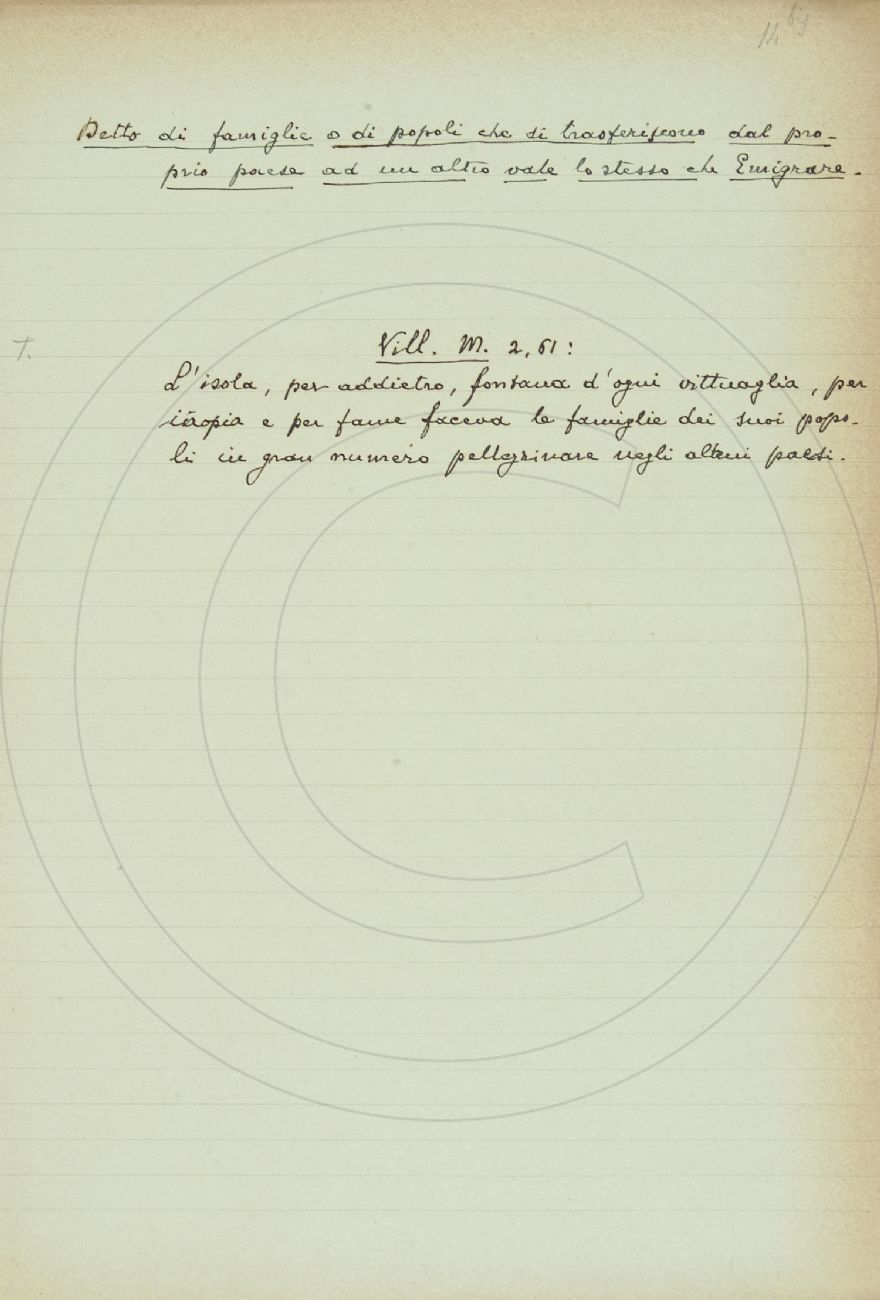 14 bis
Detto di famiglie o di popoli che si trasferiscono dal pro-
prio paese ad un altro vale lo stesso che Emigrare.
T.
Vill. M. 2, 61:
L'isola, per addietro, fontana d'ogni vittuaglia, per
inopia e per fame faceva le famiglie dei suoi popo-
li in gran numero pellegrinare negli altrui paesi.